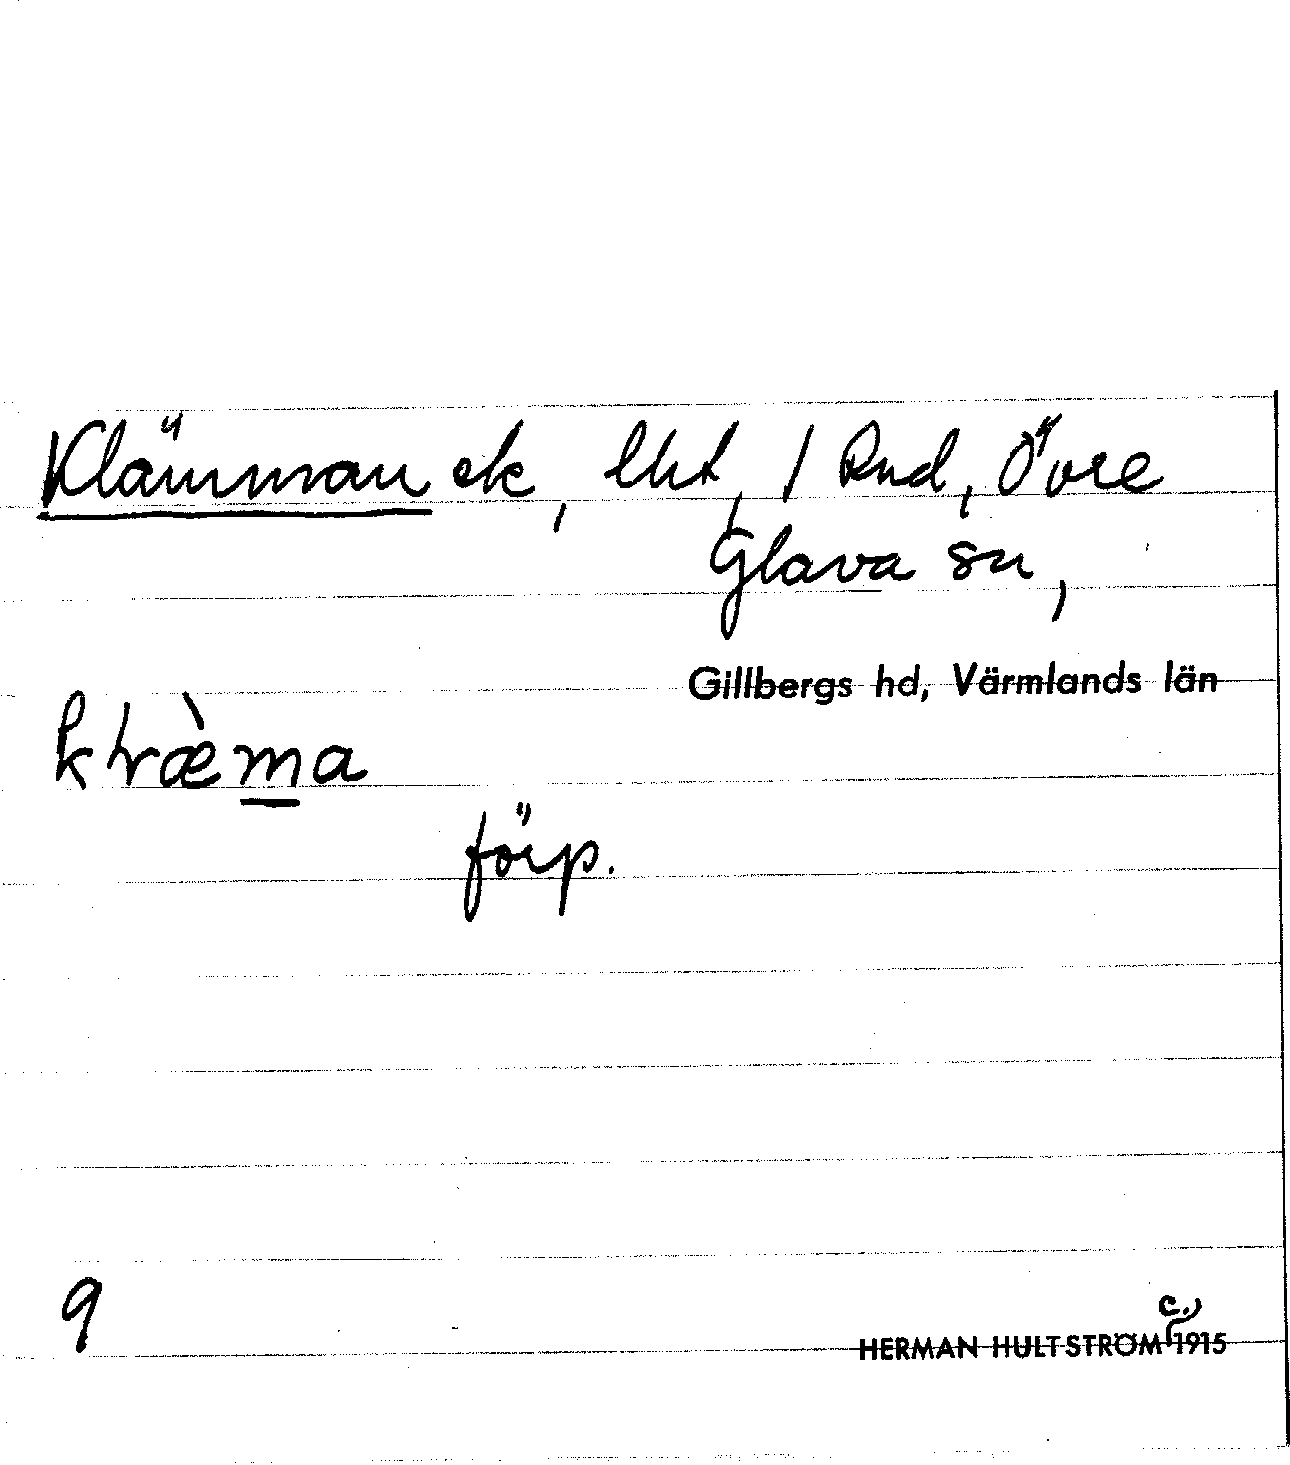 Klämman ek, lht, / Rud, Övre
Glava sn,
Gillbergs hd, Värmlands län
förp.
9
c.
HERMAN HULTSTRÖM 1915